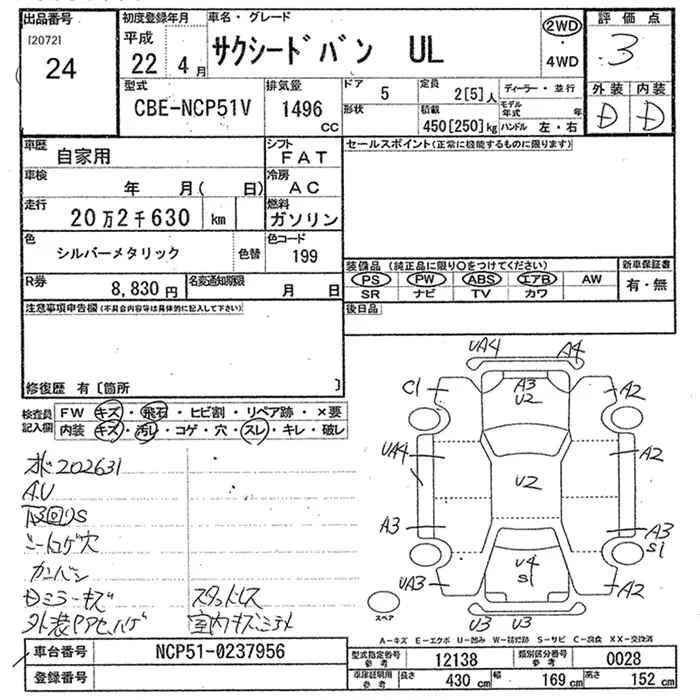 出品番号
[2072]
24
初度登録年月
平成
22 4 月
車名・グレード
サクシードバン UL
2WD
・
4WD
評価点
3
外装 内装
D D
型式
CBE-NCP51V
排気量
1496
cc
ドア
5
形状
定員
2[5]人
積載
450[250]kg
ディーラー・並行
モデル年式 年
ハンドル 左・右
車歴
自家用
シフト
FAT
車検
年 月( 日)
冷房
AC
走行
20万2千630 km
燃料
ガソリン
色
シルバーメタリック
色替
色コード
199
R券
8,830円
名変通知期限
月 日
セールスポイント(正常に機能するものに限ります)
装備品 (純正品に限り○をつけてください)
PS PW ABS エアB AW
SR ナビ TV カワ
新車保証書
有・無
後日品
注意事項申告欄(不具合内容等は具体的に記入して下さい)
修復歴 有〔箇所 〕
検査員記入欄
FW キズ・飛石・ヒビ割・リペア跡・×要
内装 キズ・汚レ・コゲ・穴・スレ・キレ・破レ
202631
A.U
シートコゲ穴
カンバン
Dミラーキズ
スタッドレス
室内キズ
UA4 A4
C1 A3 U2 A2
UA4 U2 A2
A3 A3 S1
U4 S1
UA3 A2
U3 U3
スペア
A-キズ E-エクボ U-凹み W-補修跡 S-サビ C-腐食 XX-交換済
車台番号
NCP51-0237956
登録番号
型式指定番号 参考
12138
類別区分番号 参考
0028
車庫証明用 参考
長さ 430 cm
幅 169 cm
高さ 152 cm